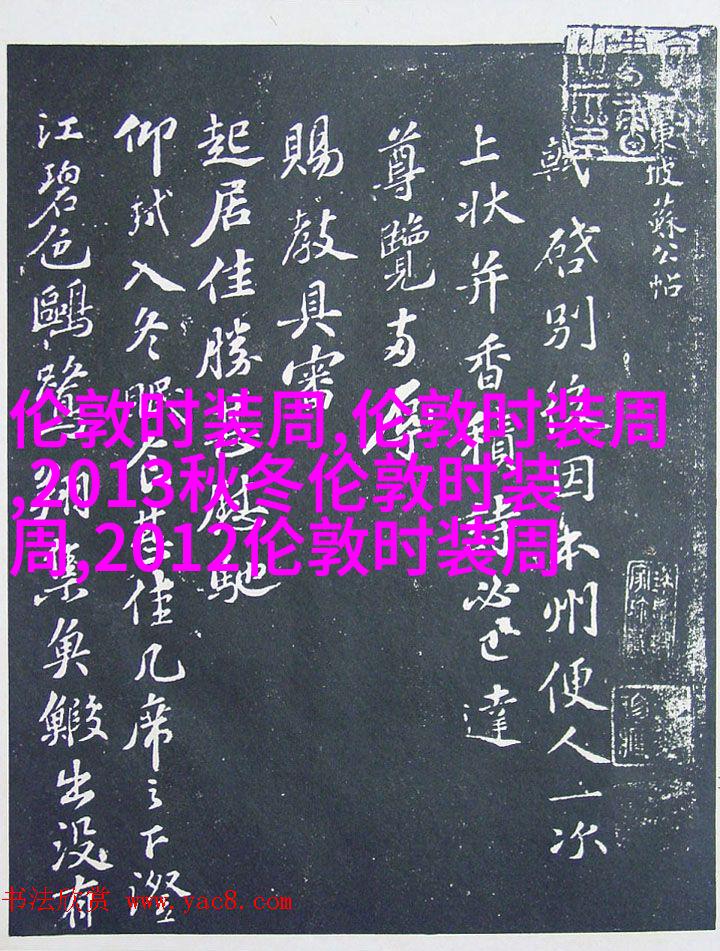 東坡蘇公帖
軾啓別後因本州便人一次
上狀并香積詩必已達
尊覽兩辱
賜教具審
起居佳勝感慰馳
仰軾入冬眠食甚佳几席之下澄
江碧色鷗鷺翔集魚鰕出没有
伦敦时装周,伦敦时装周
,2013秋冬伦敦时装
周,2012伦敦时装周
书法欣赏 www.yac8.com